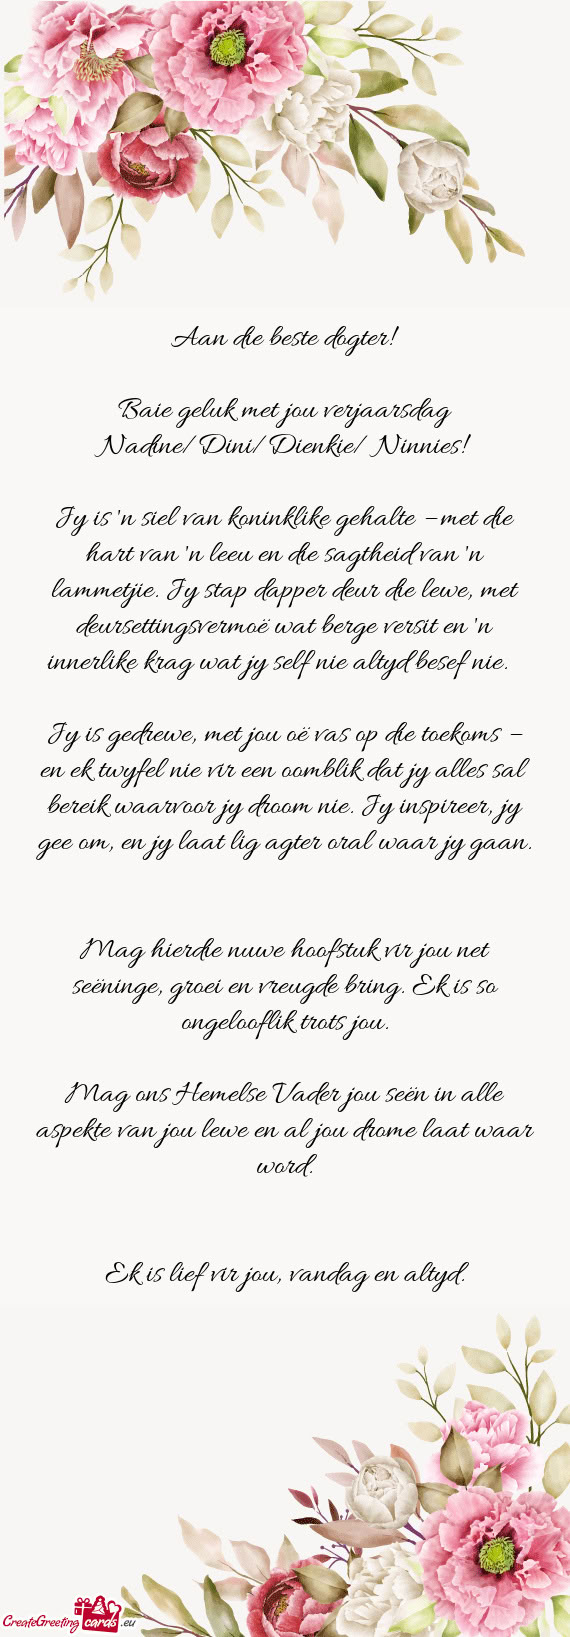 Aan die beste dogter!
Baie geluk met jou verjaarsdag
Nadine/ Dini/ Dienkie/ Ninnies!
Jy is 'n siel van koninklike gehalte –met die
hart van 'n leeu en die sagtheid van 'n
lammetjie. Jy stap dapper deur die lewe, met
deursettingsvermoë wat berge versit en 'n
innerlike krag wat jy self nie altyd besef nie.
Jy is gedrewe, met jou oë vas op die toekoms –
en ek twyfel nie vir een oomblik dat jy alles sal
bereik waarvoor jy droom nie. Jy inspireer, jy
gee om, en jy laat lig agter oral waar jy gaan.
Mag hierdie nuwe hoofstuk vir jou net
seëninge, groei en vreugde bring. Ek is so
ongelooflik trots jou.
Mag ons Hemelse Vader jou seën in alle
aspekte van jou lewe en al jou drome laat waar
word.
Ek is lief vir jou, vandag en altyd.
CreateGreeting cards .eu